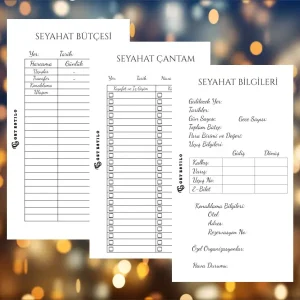 SEYAHAT BÜTÇESİ
Yer: Tarih:
Harcama Günlük
Uçuşlar
Transfer
Konaklama
Ulaşım
SEYAHAT ÇANTAM
Yer: Tarih:
Kıyafet ve İç Giyim
SEYAHAT BİLGİLERİ
Gidilecek Yer:
Tarihler:
Gün Sayısı: Gece Sayısı:
Toplam Bütçe:
Para Birimi ve Değeri:
Uçuş Bilgileri:
Gidiş Dönüş
Kalkış:
Varış:
Uçuş No:
E-Bilet:
Konaklama Bilgileri:
Otel:
Adres:
Rezervasyon No:
Özel Organizasyonlar:
Hava Durumu: